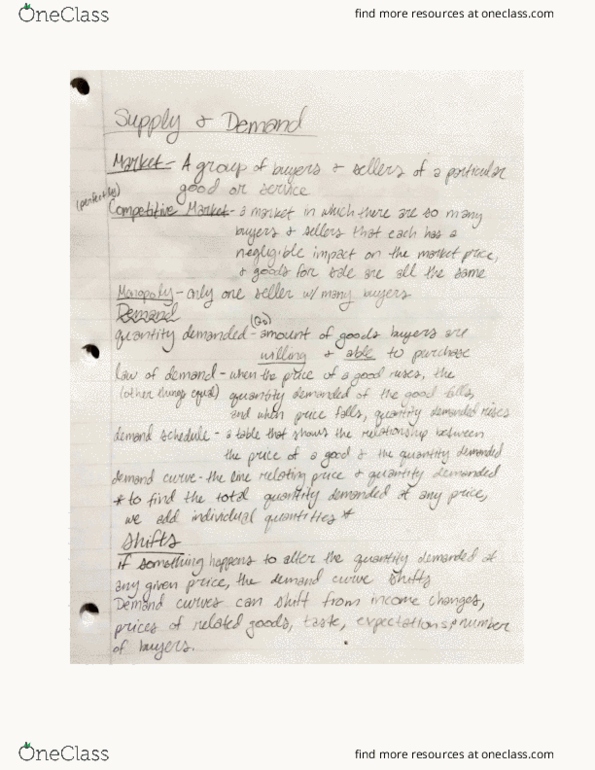 OneClass
find more resources at oneclass.com
Supply & Demand
Market - A group of buyers & sellers of a particular
good or service
(perfectly)
Competitive Market - a market in which there are so many
buyers & sellers that each has a
negligible impact on the market price,
& goods for sale are all the same
Monopoly - only one seller w/ many buyers
Demand
quantity demanded - amount of goods buyers are
willing & able to purchase
law of demand - when the price of a good rises, the
(other things equal) quantity demanded of the good falls,
and when price falls, quantity demanded rises
demand schedule - a table that shows the relationship between
the price of a good & the quantity demanded
demand curve - the line relating price & quantity demanded
* to find the total quantity demanded at any price,
we add individual quantities *
Shifts
if something happens to alter the quantity demanded at
any given price, the demand curve shifts
Demand curves can shift from income changes,
prices of related goods, taste, expectations, & number
of buyers.
OneClass
find more resources at oneclass.com